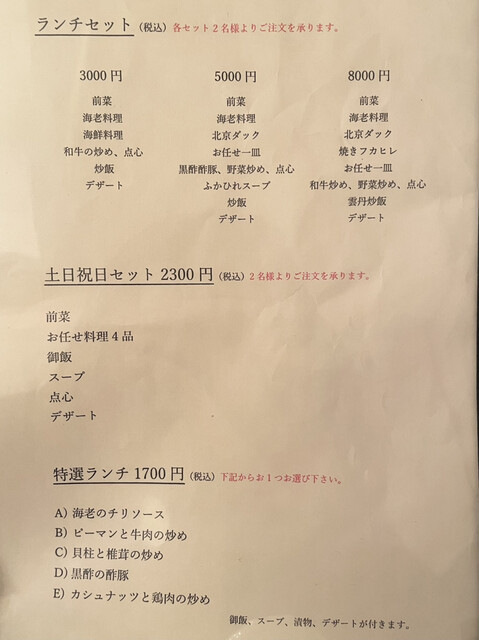 ランチセット（税込）各セット２名様よりご注文を承ります。
3000 円
前菜
海老料理
海鮮料理
和牛の炒め、点心
炒飯
デザート
5000 円
前菜
海老料理
北京ダック
お任せ一皿
黒酢酢豚、野菜炒め、点心
ふかひれスープ
炒飯
デザート
8000 円
前菜
海老料理
北京ダック
焼きフカヒレ
お任せ一皿
和牛炒め、野菜炒め、点心
雲丹炒飯
デザート
土日祝日セット 2300 円（税込）２名様よりご注文を承ります。
前菜
お任せ料理４品
御飯
スープ
点心
デザート
特選ランチ 1700 円（税込）下記からお１つお選び下さい。
A）海老のチリソース
B）ピーマンと牛肉の炒め
C）貝柱と椎茸の炒め
D）黒酢の酢豚
E）カシュナッツと鶏肉の炒め
御飯、スープ、漬物、デザートが付きます。